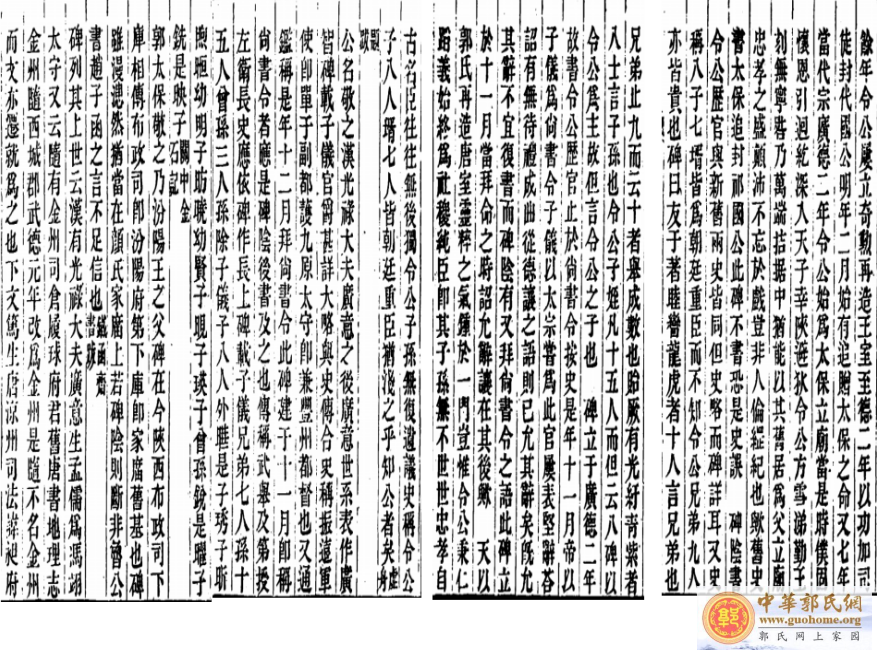 餘年令公屢立奇勲再造王室至德二年以功加司
徒封代國公明年二月始有追贈太保之命又七年
當代宗廣德二年令公始爲太保立廟當是時僕固
懷恩引迴紇深入天子幸陝避狄令公方雪涕勤王
刻無寧晷乃萬端拮据中猶能以其舊居爲父立廟
忠孝之盛顛沛不忘於戲豈非人倫綱紀也歟舊史
書太保追封祁國公此碑不書恐是史誤 碑陰書
令公歷官與新舊兩史皆同但史略而碑詳耳又史
稱八子七壻皆爲朝廷重臣而不知令公兄弟九人
亦皆貴也碑曰友于著睦龍虎者十人言兄弟也
兄弟止九而云十者舉成數也貽厥有光紆青紫者
八士言子孫也令公子姪凡十五人而但云八碑以
令公爲主故但言令公之子也 碑立于廣德二年
故書令公歷官止於尚書令按史是年十一月帝以
子儀爲尚書令子儀以太宗嘗爲此官屢表堅辭荅
詔有無待禮成曲從德讓之語則已允其辭矣既允
其辭不宜復書而碑陰有又拜尚書令之語此碑立
於十一月當拜命之時詔允辭讓在其後歟 天以
郭氏再造唐室靈粹之氣鍾於一門豈惟令公秉仁
蹈義始終爲社稷純臣即其子孫無不世世忠孝自
古名臣往往無後獨令公子孫無復遺議史稱令公
子八人壻七人皆朝廷重臣猶淺之乎知公者矣虛舟
題跋
公名敬之漢光祿大夫廣意之後廣意世系表作廣
智碑載子儀官爵甚詳大略與史傳合史稱振遠軍
使即單于副都護九原太守即兼豐州都督也又通
鑑稱是年十二月拜尚書令此碑建于十一月即稱
尚書令者應是碑陰後書及之也傳稱武舉及第授
左衛長史應依碑作長上碑載子儀兄弟七人孫十
五人曾孫三人孫除子儀子八人外雎是子琇子昕
煦暅幼明子昉晥幼賢子晛子瑛子曾孫銳是曜子
銑是映子關中金石記
郭太保敬之乃汾陽王之父碑在今陝西布政司下
庫相傳布政司即汾陽府第下庫即家廟舊基也碑
雖漫漶然猶當在顏氏家廟上若碑陰則斷非魯公
書趙子函之言不足信也鐵函齋書跋
碑列其上世云漢有光祿大夫廣意生孟儒爲馮翊
太守又云隨有金州司倉履球府君舊唐書地理志
金州隨西城郡武德元年改爲金州是隨不名金州
而文亦遷就爲之也下文篤生唐涼州司法諱昶府
中華郭氏網
www.guohome.org
郭氏网上家园